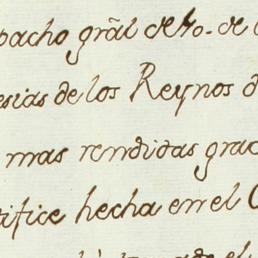 pacho grãl de to. de
esias de los Reynos d
mas rendidas grac
tifice hecha en el C